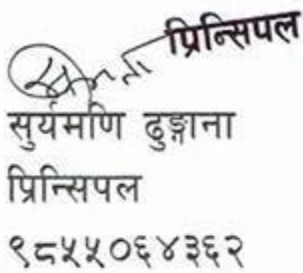 प्रिन्सिपल
सुर्यमणि ढुङ्गाना
प्रिन्सिपल
९८५५०६४३६२